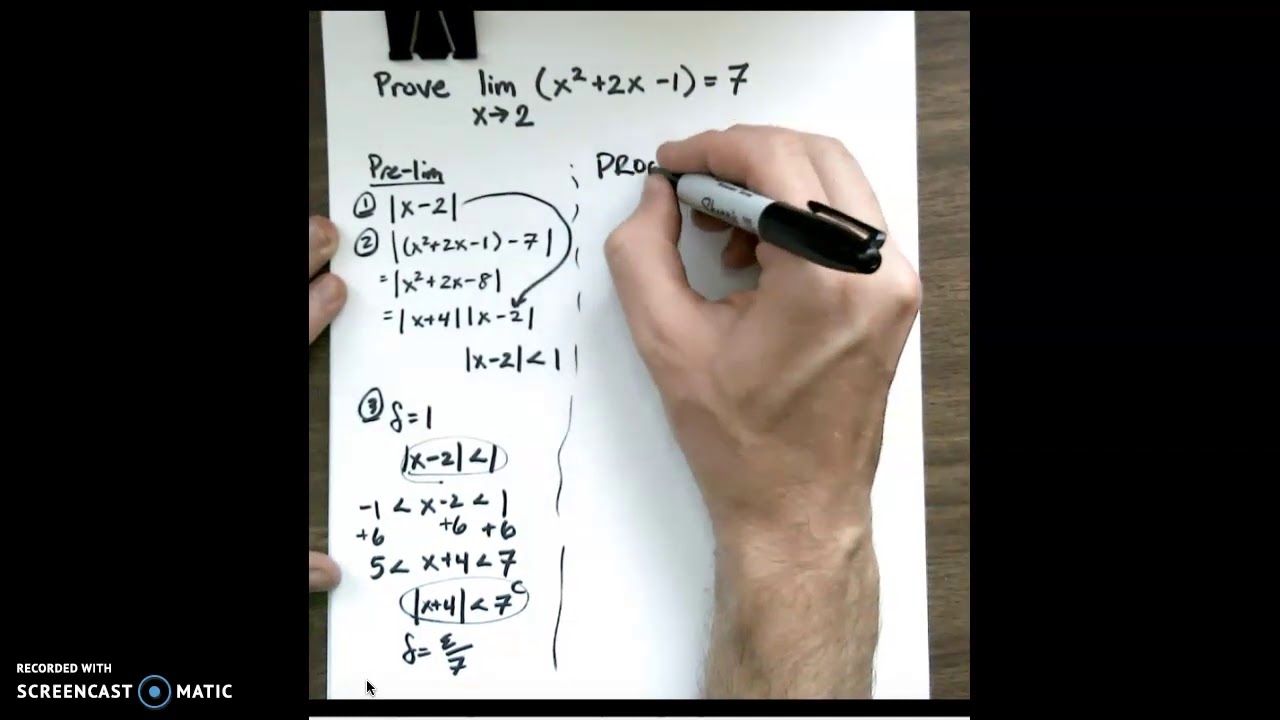 Prove lim (x²+2x-1) = 7
x→2
Pre-lim
① |x-2|
② |(x²+2x-1) - 7|
= |x²+2x-8|
= |x+4||x-2|
|x-2| < 1
③ δ=1
|x-2| < 1
-1 < x-2 < 1
+6 +6 +6
5 < x+4 < 7
|x+4| < 7 C
δ = ε/7
PROO
Sharpie
RECORDED WITH
SCREENCAST MATIC